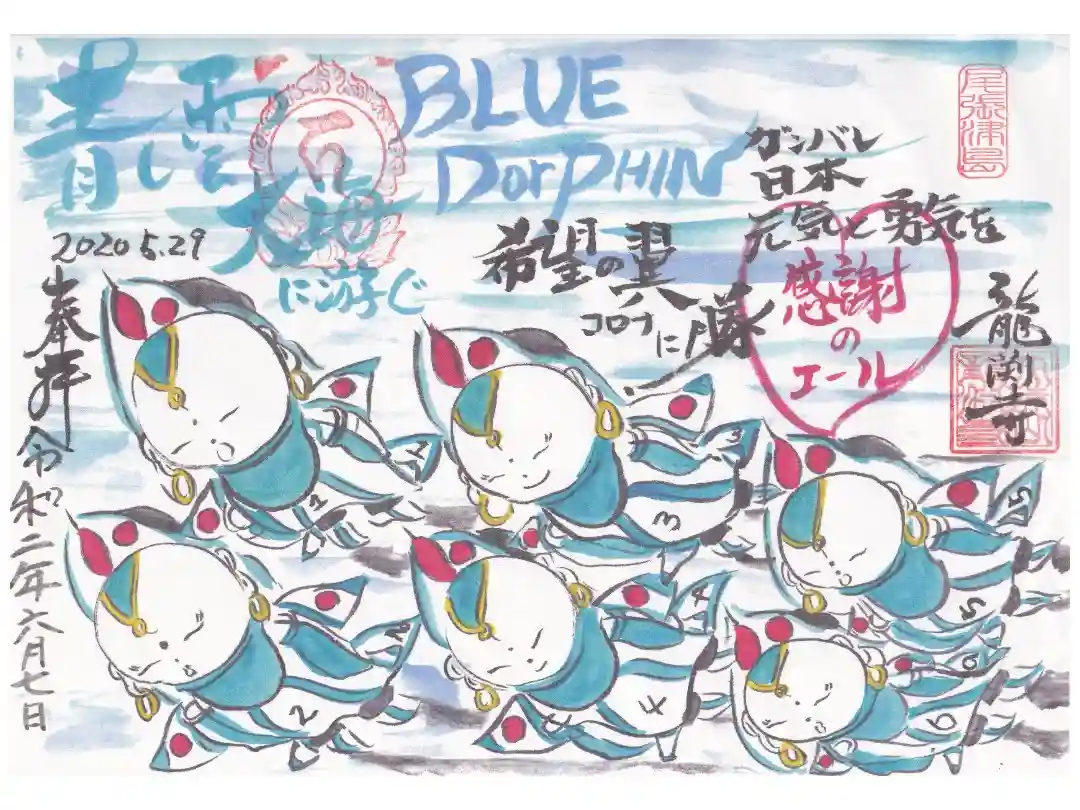 青い雲
大海
に游ぐ
BLUE
DorPHIN
尾張津島
ガンバレ
日本
元気と勇気を
感謝
の
エール
希望の翼
コロナに勝
龍渕寺
2020 5.29
奉拝
令和二年六月七日
1
3
5
2
4
6